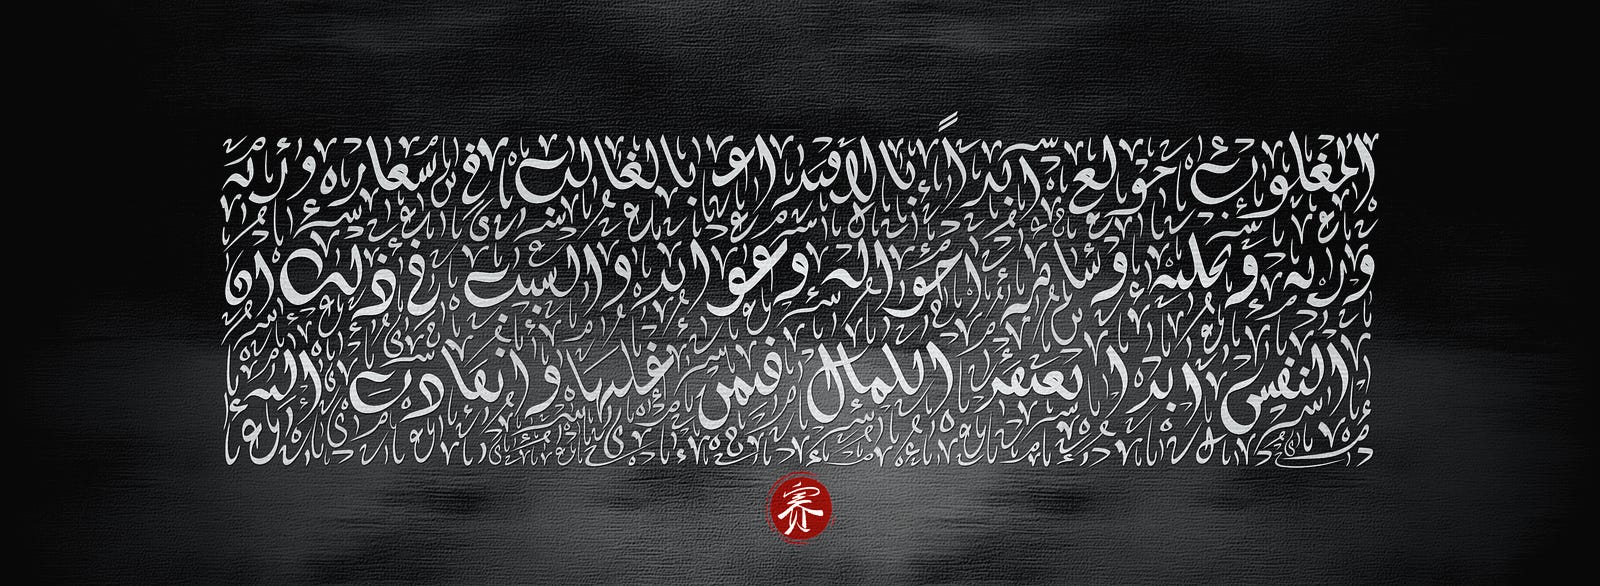 المغلوب مولع أبداً بالاقتداء بالغالب في شعاره وزيه
وزيه ونحلته وسائر أحواله وعوائده والسبب في ذلك أن
النفس أبدا تعتقد الكمال فيمن غلبها وانقادت إليه